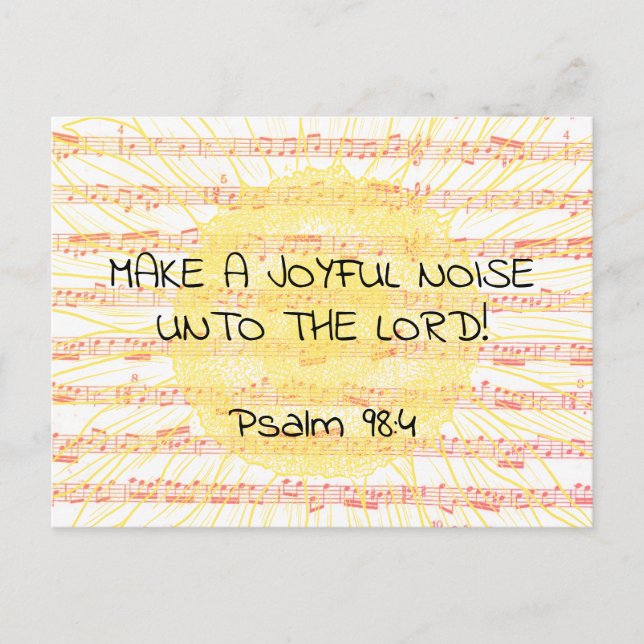 MAKE A JOYFUL NOISE
UNTO THE LORD!
Psalm 98:4
4
4
5
8
10